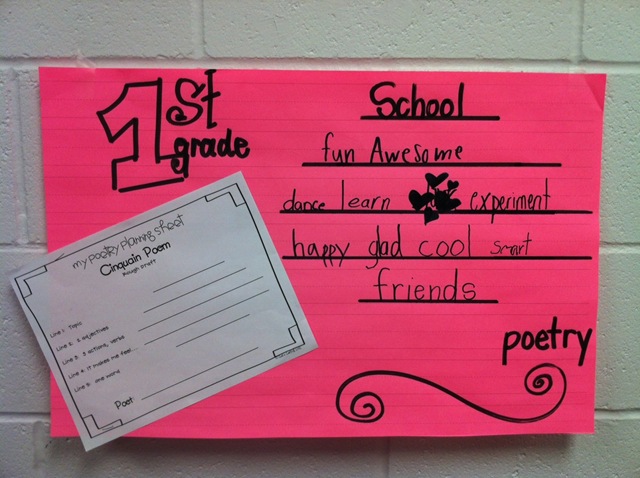 1st
grade
School
fun Awesome
dance learn experiment
happy glad cool smart
friends
poetry
my poetry planning sheet
Cinquain Poem
Rough Draft
Line 1: Topic
Line 2: 2 adjectives
Line 3: 3 actions, verbs
Line 4: IT makes me feel...
Line 5: one word
Poet: